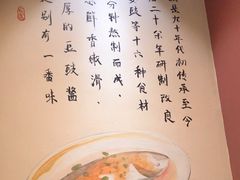 是九十年代初传承至今
二十余年研制改良
豉等十六种食材
分料熬制而成
鲜香嫩滑
厚的豆豉酱
别有一番味